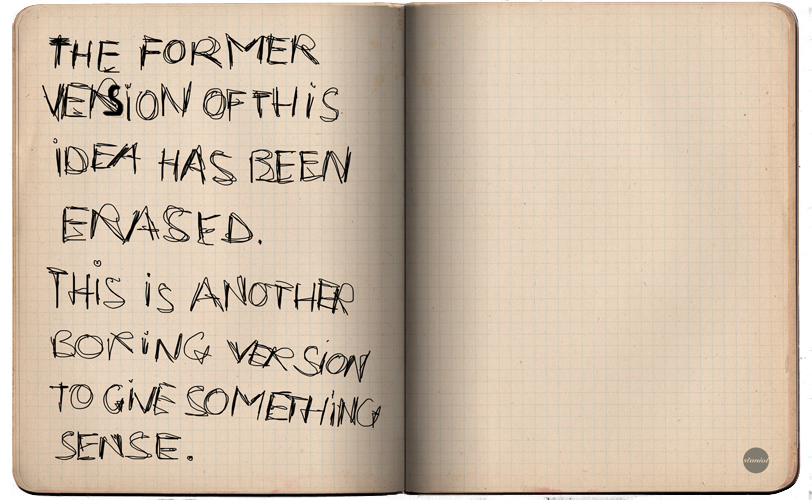 THE FORMER
VERSiON OF THiS
iDEA HAS BEEN
ERASED.
THiS iS ANOTHER
BORiNG VERSiON
TO GiVE SOMETHiNG
SENSE.